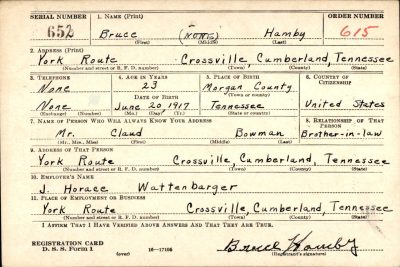 SERIAL NUMBER 1. NAME (Print) ORDER NUMBER
652 Bruce (NONE) Hamby 615
(First) (Middle) (Last)
2. ADDRESS (Print)
York Route Crossville, Cumberland, Tennessee
(Number and street or R. F. D. number) (Town) (County) (State)
3. TELEPHONE 4. AGE IN YEARS 5. PLACE OF BIRTH 6. COUNTRY OF CITIZENSHIP
None 23 Morgan County
DATE OF BIRTH (Town or county)
None June 20, 1917 Tennessee United States
(Exchange) (Number) (Mo.) (Day) (Yr.) (State or country)
7. NAME OF PERSON WHO WILL ALWAYS KNOW YOUR ADDRESS 8. RELATIONSHIP OF THAT PERSON
Mr. Claud Bowman Brother-in-law
(Mr., Mrs., Miss) (First) (Middle) (Last)
9. ADDRESS OF THAT PERSON
York Route Crossville, Cumberland, Tennessee
(Number and street or R. F. D. number) (Town) (County) (State)
10. EMPLOYER'S NAME
J. Horace Wattenbarger
11. PLACE OF EMPLOYMENT OR BUSINESS
York Route Crossville, Cumberland, Tennessee
(Number and street or R. F. D. number) (Town) (County) (State)
I AFFIRM THAT I HAVE VERIFIED ABOVE ANSWERS AND THAT THEY ARE TRUE.
REGISTRATION CARD
D. S. S. Form 1 16—17105 Bruce Hamby
(over) (Registrant's signature)